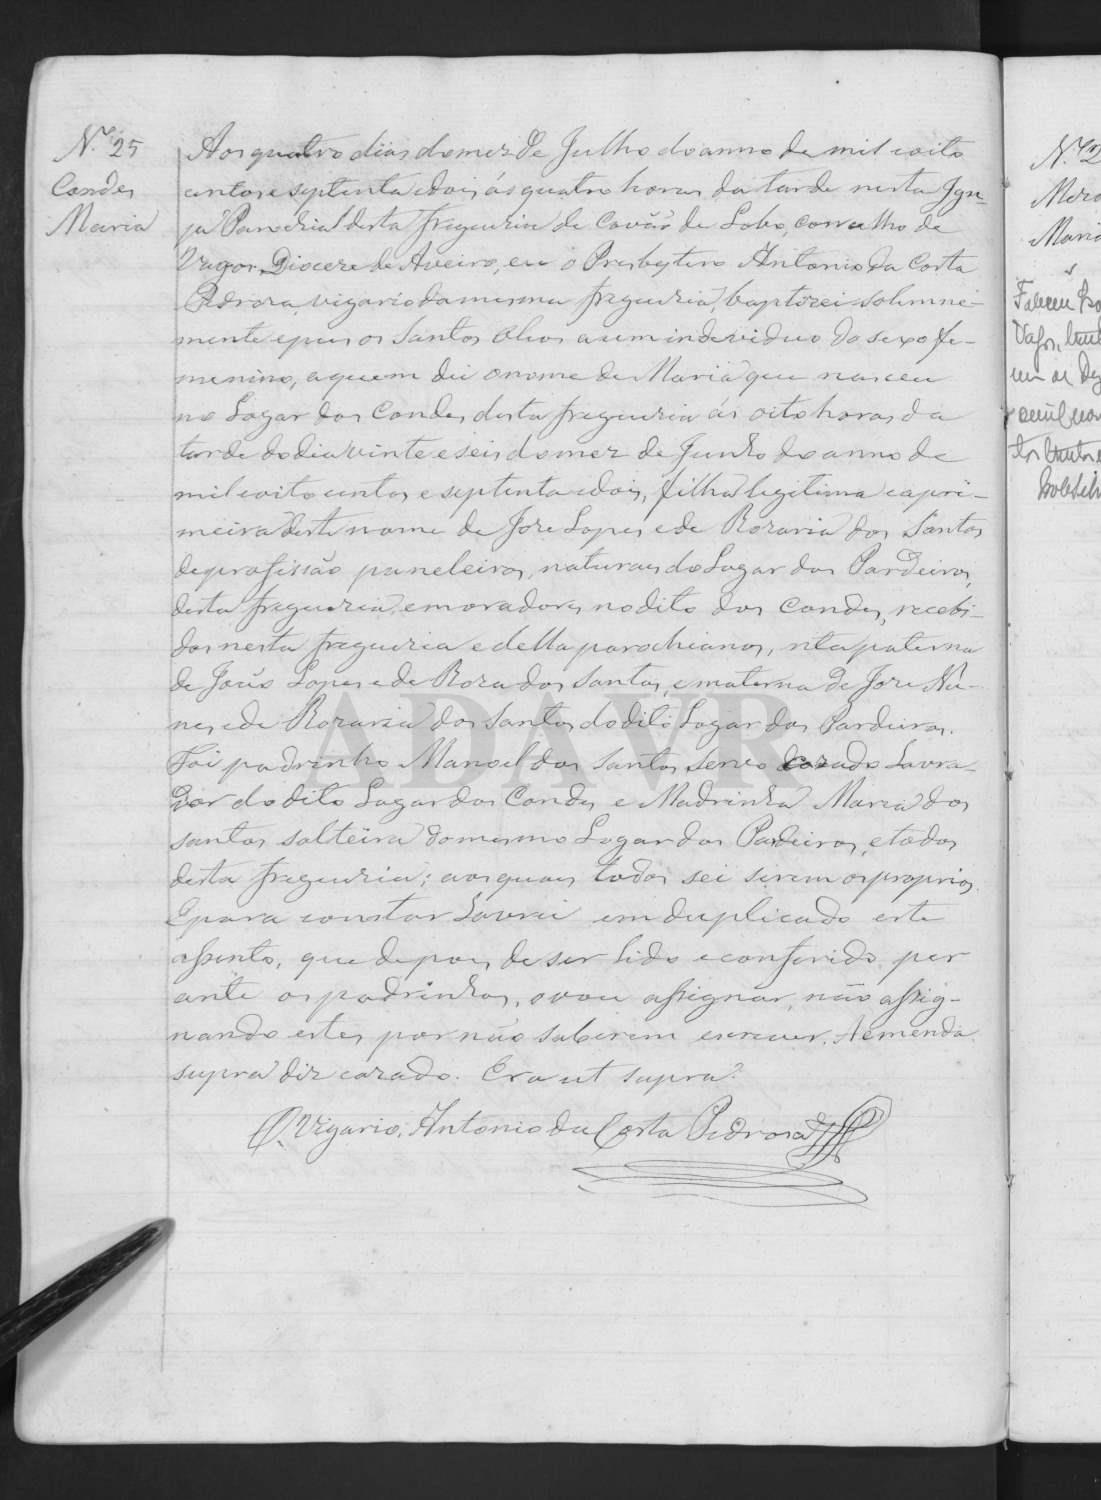 N.º 25
Condes
Maria
Aos quatro dias do mez de Julho do anno de mil e oito
centos e septenta e dois, ás quatro horas da tarde nesta Igre-
ja Parochial desta freguezia de Covão de Lobo, concelho de
Vagos, Diocese de Aveiro, eu o Presbytero Antonio da Costa
Pedrosa, vigario da mesma freguezia, baptizei solemne-
mente e puz os Santos Oleos a um individuo do sexo fe-
menino, a quem dei o nome de Maria que nasceu
no Logar dos Condes desta freguezia ás oito horas da
tarde do dia vinte e seis do mez de Junho do anno de
mil e oito centos e septenta e dois, filha legitima e a pri-
meira deste nome de Joze Lopes e de Rozaria dos Santos
de profissão paneleiros, naturaes do Logar dos Pardeiros,
desta freguezia, e moradores no dito dos Condes, recebi-
dos nesta freguezia e della parochianos, neta paterna
de João Lopes e de Roza dos Santos, e materna de Joze Nu-
nes e de Rozaria dos Santos do dito Logar dos Pardeiros.
Foi padrinho Manoel dos Santos Servo cazado Lavra-
dor do dito Logar dos Condes e Madrinha Maria dos
Santos solteira do mesmo Logar dos Pardeiros, e todos
desta freguezia; aos quaes todos sei serem os proprios.
E para constar Lavrei em duplicado este
assento, que depois de ser lido e conferido per
ante os padrinhos, o vou assignar, não assig-
nando estes por não saberem escrever. A emenda
supra diz cazado. Era ut supra.
O Vigario, Antonio da Costa Pedrosa
ADAVR
Maria